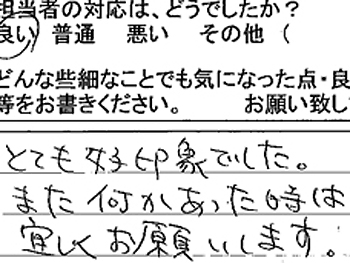 担当者の対応は、どうでしたか？
良い 普通 悪い その他（
どんな些細なことでも気になった点・良
等をお書きください。 お願い致し
とても好印象でした。
また何かあった時は
宜しくお願いします。